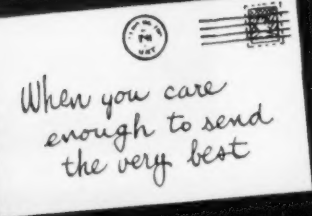 When you care
enough to send
the very best